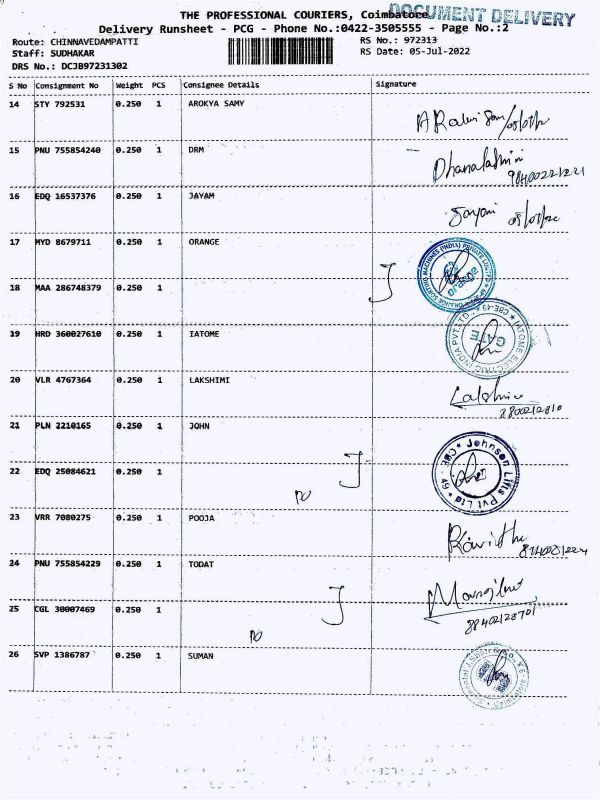 THE PROFESSIONAL COURIERS, Coimbatore
DOCUMENT DELIVERY
Delivery Runsheet - PCG - Phone No.:0422-3505555 - Page No.:2
Route: CHINNAVEDAMPATTI RS No.: 972313
Staff: SUDHAKAR RS Date: 05-Jul-2022
DRS No.: DCJB97231302
S No Consignment No Weight PCS Consignee Details Signature
14 STY 792531 0.250 1 AROKYA SAMY
15 PNU 755854240 0.250 1 DRM
Dhanalakshmi
16 EDQ 16537376 0.250 1 JAYAM
17 MYD 8679711 0.250 1 ORANGE
ORANGE SORTING MACHINES (INDIA) PRIVATE LIMITED
18 MAA 286748379 0.250 1
19 HRD 360027610 0.250 1 IATOME
IATOME ELECTRIC INDIA PVT.LTD. CBE-49
GATE
20 VLR 4767364 0.250 1 LAKSHIMI
21 PLN 2210165 0.250 1 JOHN
Johnson Lifts Pvt Ltd CBE 49
22 EDQ 25084621 0.250 1
23 VRR 7080275 0.250 1 POOJA
24 PNU 755854229 0.250 1 TODAT
25 CGL 30007469 0.250 1
26 SVP 1386787 0.250 1 SUMAN